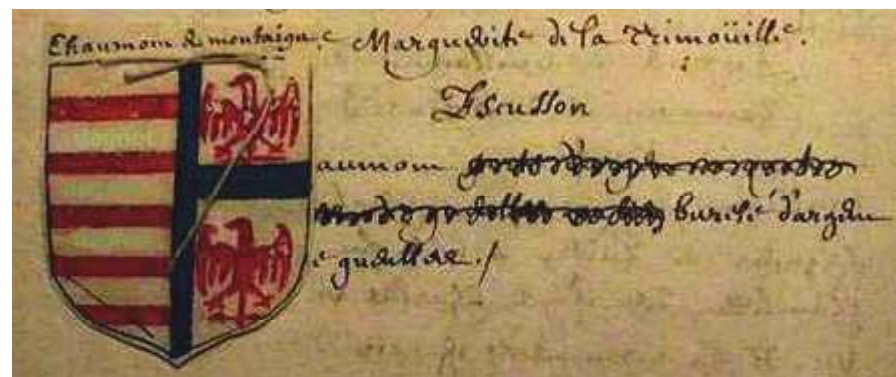 Chaumom & montaigu, e Marguerite de la Trimoüille.
Escusson
aumom
burelé d'argen
e gueulles /